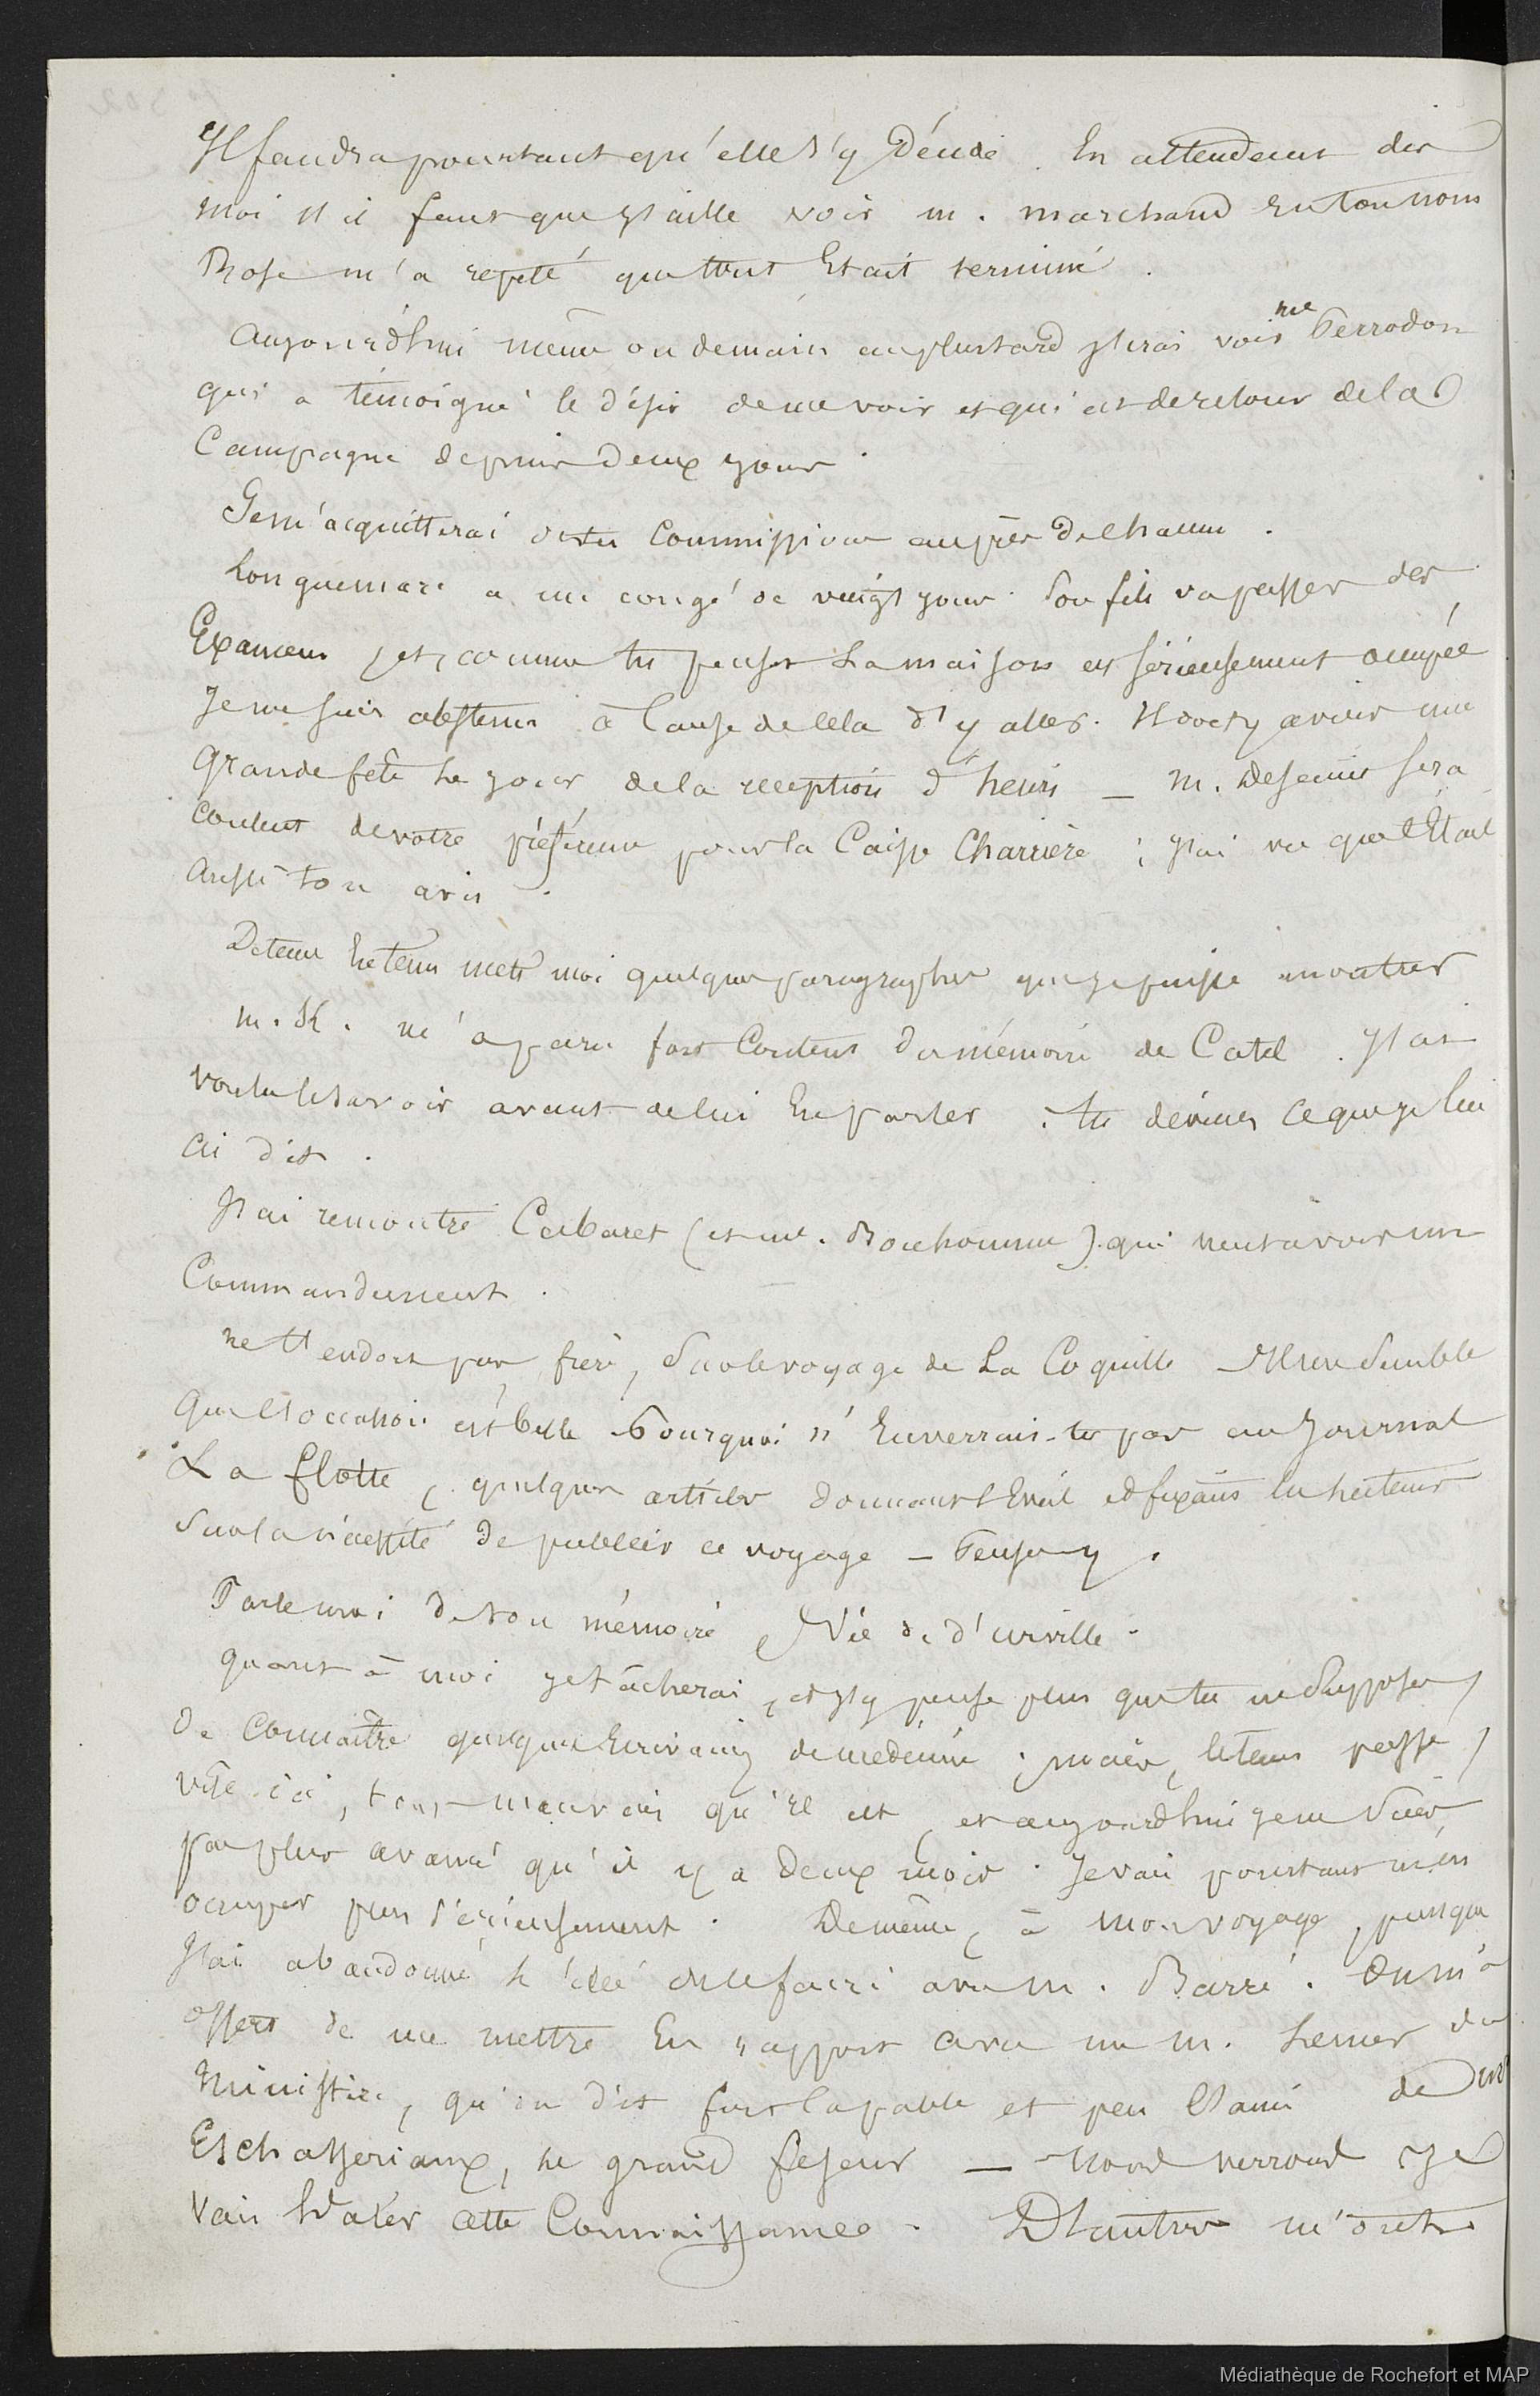 Il faudra pourtant qu'elle s'y décide. En attendant dis
moi s'il faut que j'aille voir m. marchand en ton nom
Rose m'a repeté que tout Etait terminé.
Aujourd'hui même ou demain au plus tard j'irai voir me Perrodon
qui a témoigné le désir de me voir et qui est de retour de la
Campagne depuis deux jours.
Je m'acquitterai de tes Commissions auprès de chacun.
Longuemare a un congé de vingt jours. Son fils va passer des
Examens, et, comme tu penses La maison est sérieusement occupée
Je me suis abstenu à Cause de Cela d'y aller. Il doit y avoir une
grande fête Le jour de la reception d'henri _ M. sera
content de votre pour la Caisse Charrière ; J'ai vu que c'Etait
Aussi ton avis.
De tems En tems mets moi quelques paragraphes que je puisse montrer
M. K. m'a paru fort Content du mémoire de Catel. J'ai
voulu le savoir avant de lui En parler : tu devines ce que je lui
ai dit.
J'ai rencontré Cabaret (et me. Bonhomme) qui veut avoir un
Commandement.
ne t'endors pas, frère, Sur le voyage de La Coquille _ Il me Semble
Que l'occasion est belle. Pourquoi n'Enverrais-tu pas au Journal
La flotte, quelques articles donnant l'Eveil et fixant les lecteurs
Sur la nécessité de publier ce voyage _ Penses-y.
Parle moi de ton mémoire, Vie de d'urville.
quant à moi je tâcherai, et j'y pense plus que tu ne Supposes,
de Connaître quelques Ecrivains de medecine ; mais, le tems passe,
vite ici, tout mauvais qu'il est, et aujourd'hui je ne Suis
pas plus avancé qu'il y a deux mois. Je vais pourtant m'en
occuper plus sérieusement. De même, à mon voyage, puisque
J'ai abandonné l'idée de le faire avec m. Barré. On m'a
offert de me mettre En rapport avec un m. du
Ministère, qu'on dit fort Capable et peu l'ami de
Eschasseriaux, le grand feseur _ Nous verrons ; je
Vais Hater cette Connaissance. D'autres m'ont
Médiathèque de Rochefort et MAP